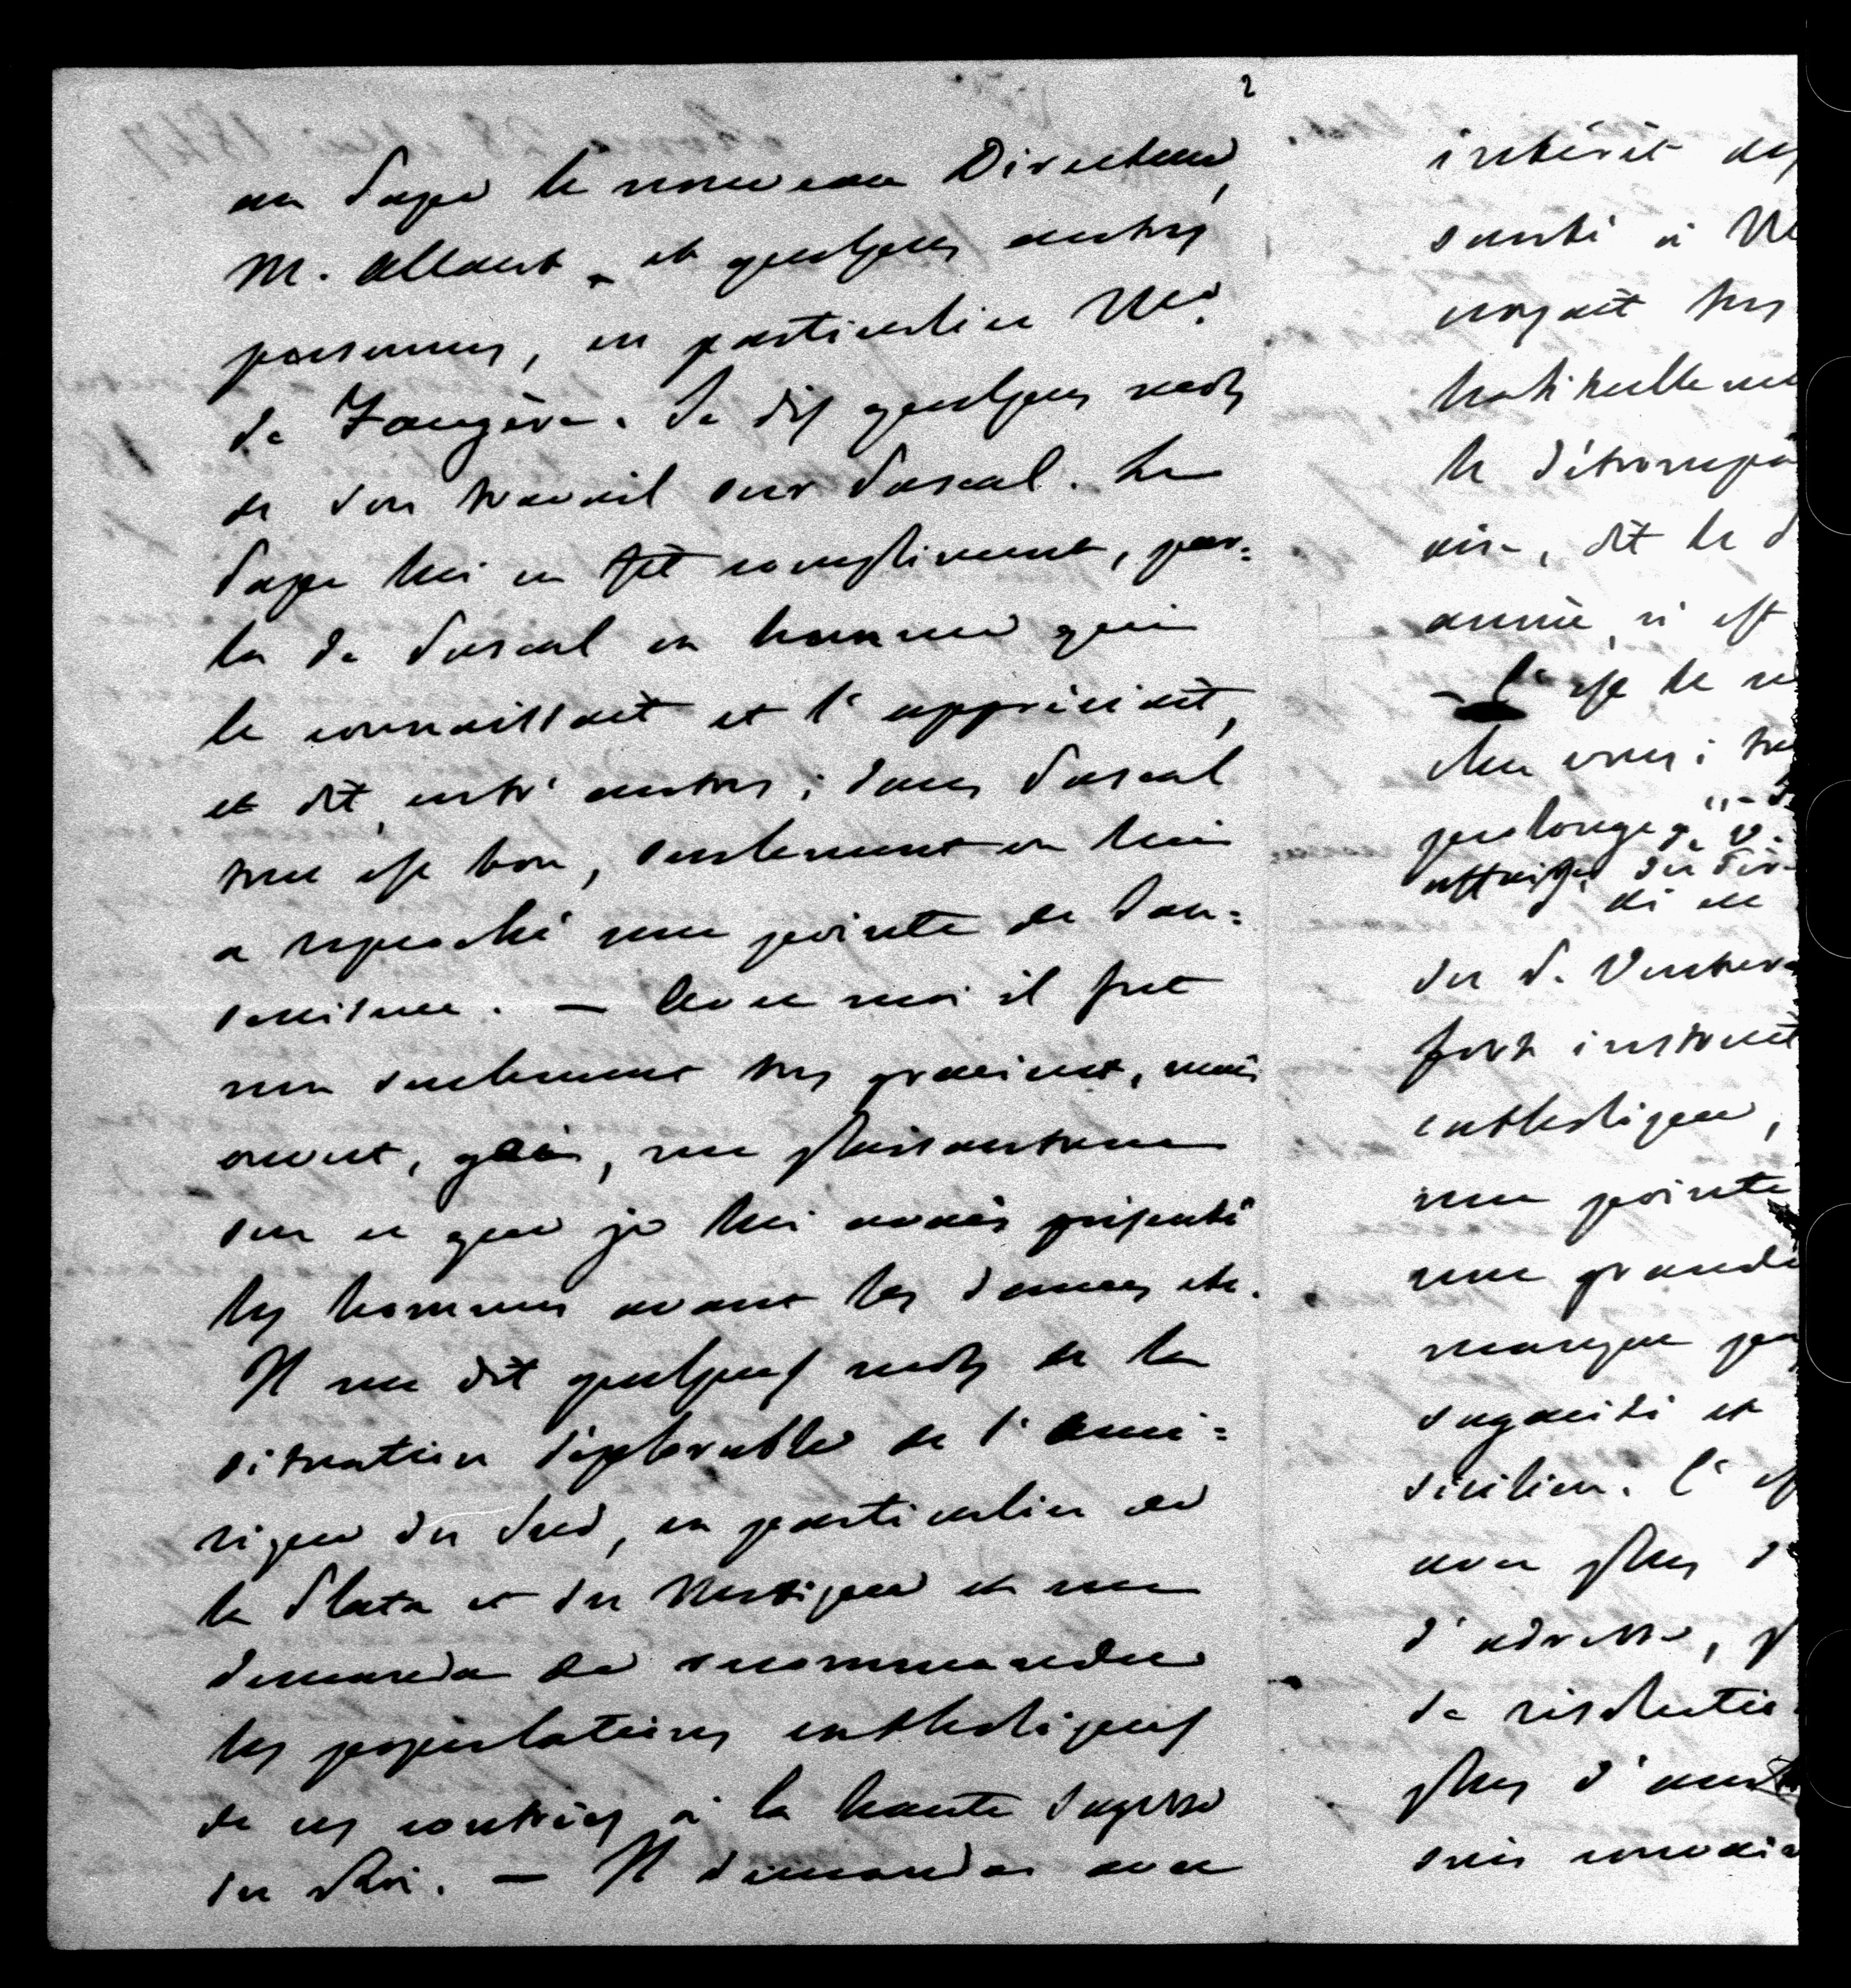 2
au Pape le nouveau Directeur,
M. Alaux, et quelques autres
personnes, en particulier Mr.
de Faugère. Je dis quelques mots
de son travail sur Pascal. Le
Pape lui en fit compliment, par=
la de Pascal en homme qui
le connaissait et l'appréciait,
et dit, entr'autres; dans Pascal
tout est bon, seulement on lui
a reproché une pointe de Jan=
senisme. — Avec moi il fut
non seulement très gracieux, mais
ouvert, gai, me plaisantant
sur ce que je lui avais présenté
les hommes avant les dames etc.
Il me dit quelques mots de la
situation déplorable de l'Amé=
rique du Sud, en particulier de
la Plata et du Mexique et me
demanda de recommander
les populations catholiques
de ces contrées à la haute sagesse
du Roi. — Il demanda avec
intérêt des
santé à M
croyait très
habituellem
le détrompa
aise, dit le P
année, si est
— C'est le
chez vous; tr
prolonge
du P. Ventura
fort instruit
catholique,
une pointe
une grande
manque pa
sagacité et
sicilien. C'es
avec plus d
d'adresse, p
de résolution
plus d'aut
suis convai